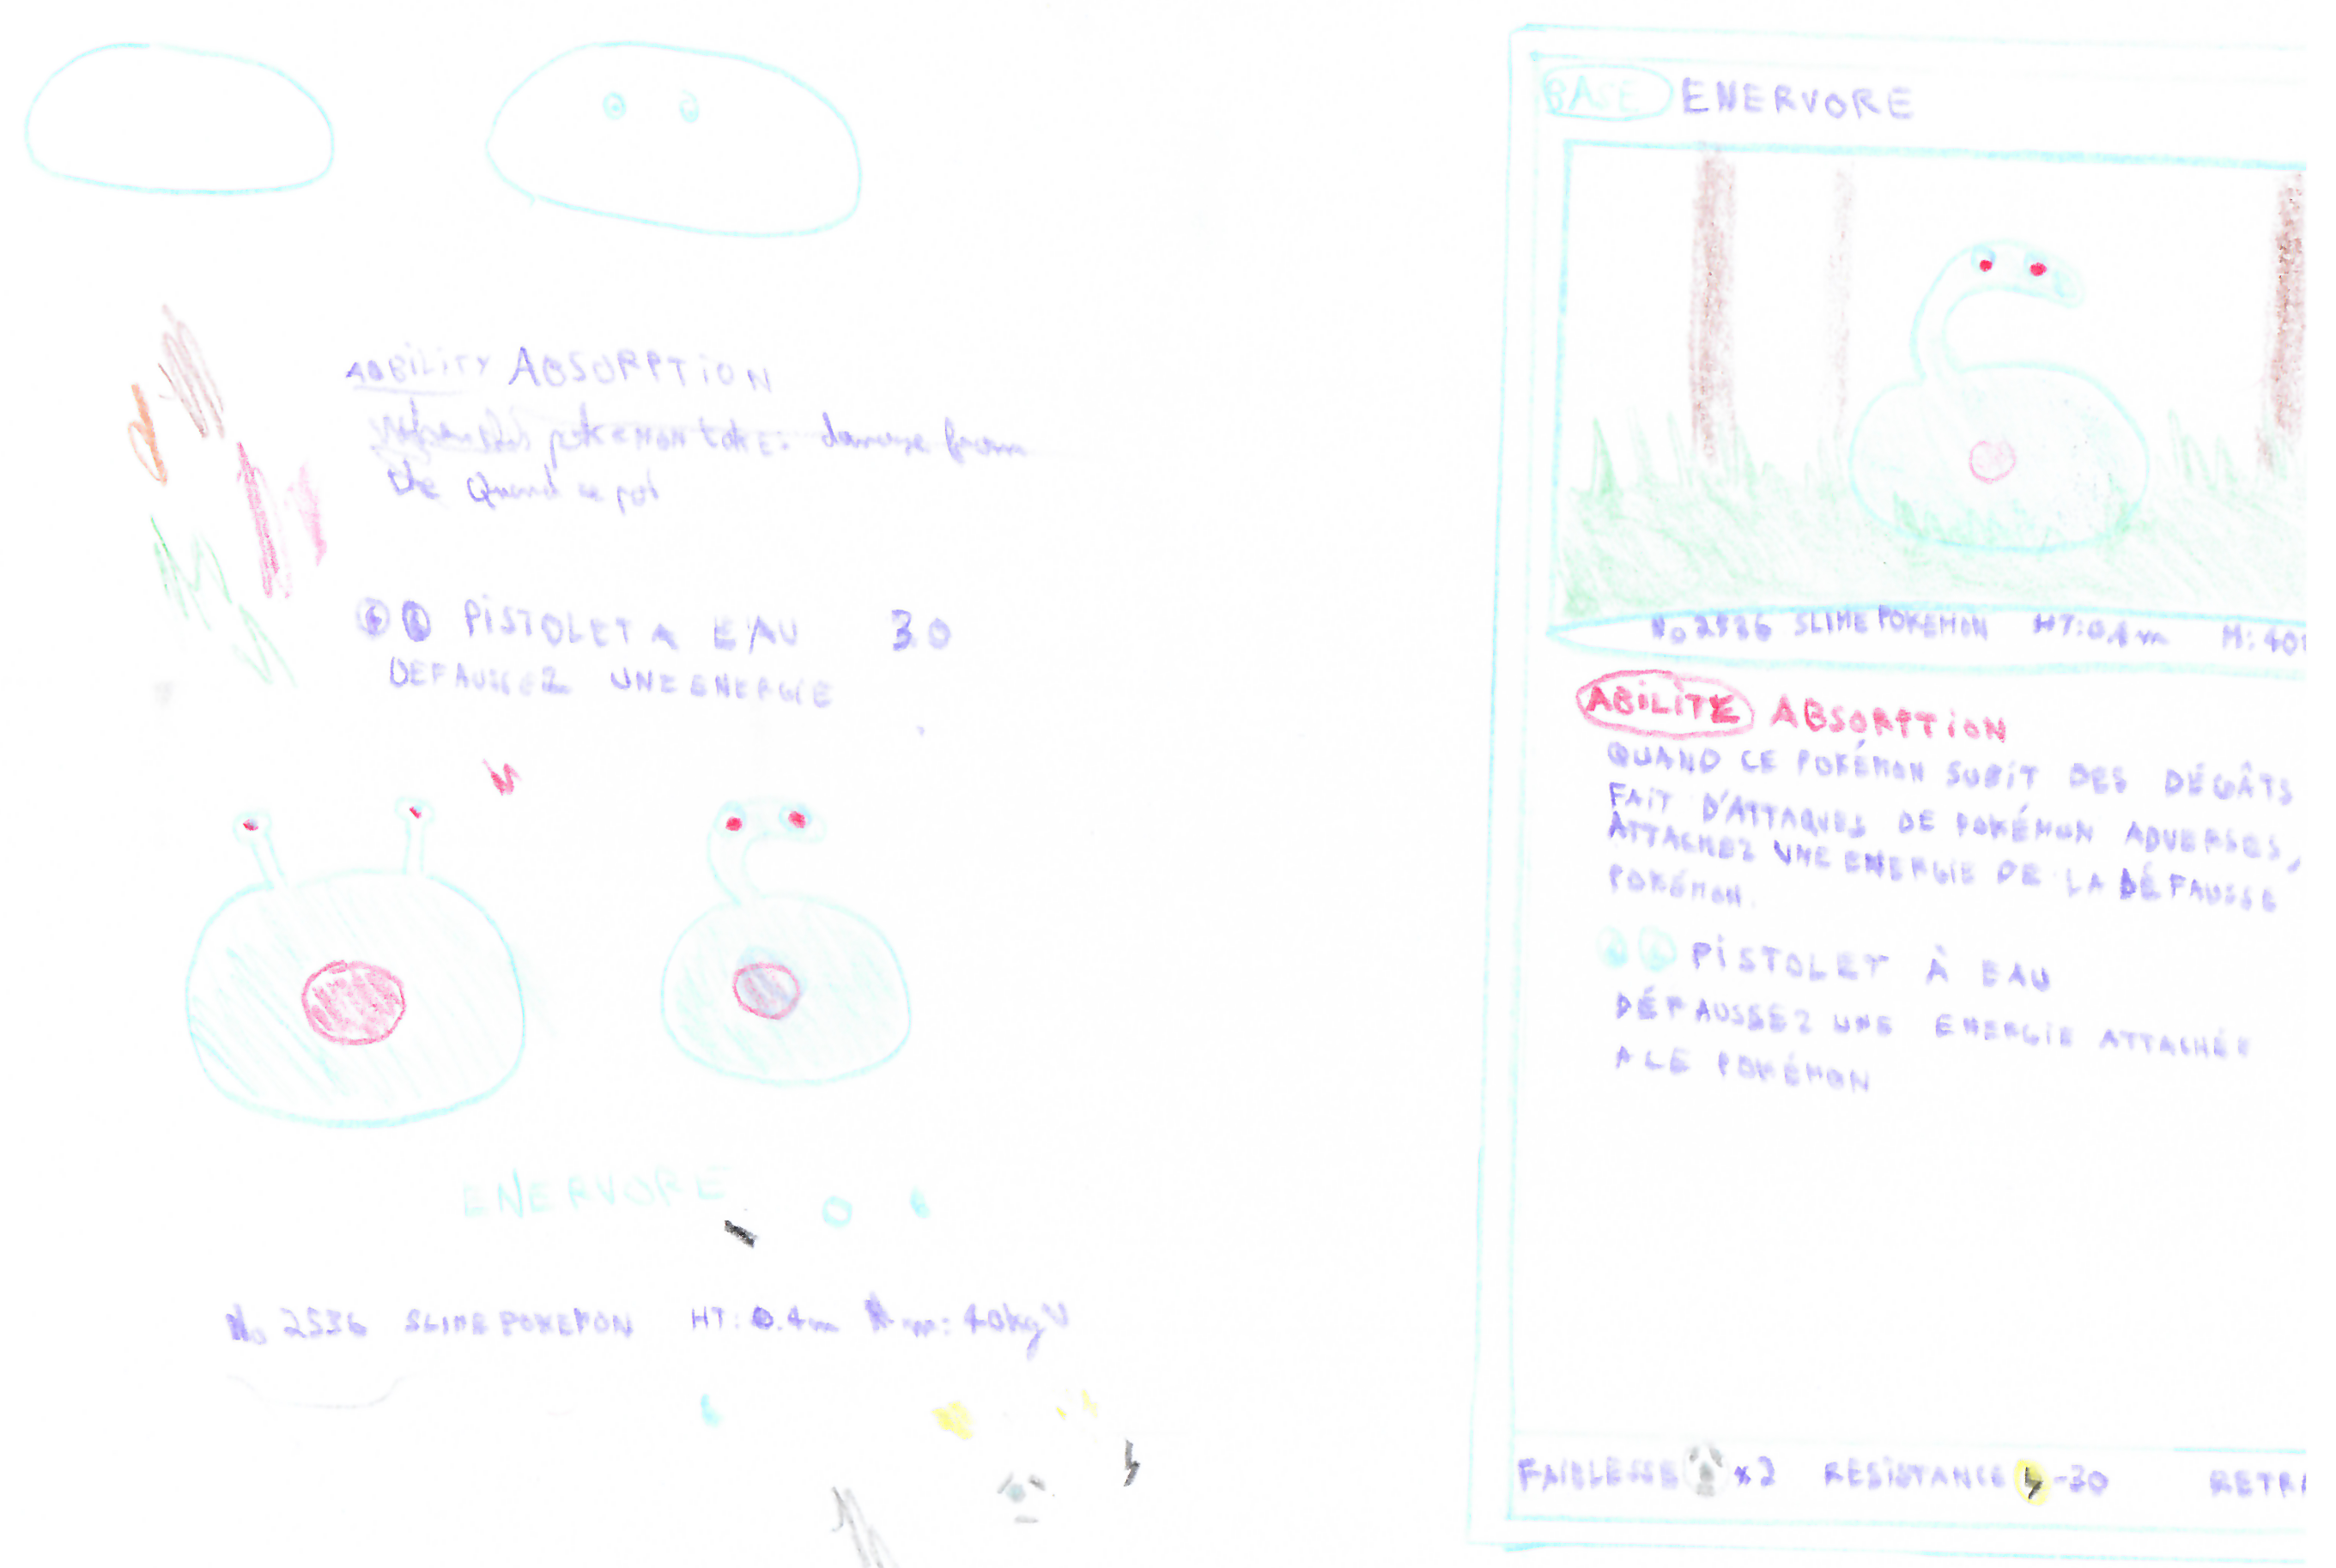 ABILITY ABSORPTION
pokemon take damage from
the Quand ce pok
PISTOLET A EAU 30
DEFAUSSEZ UNE ENERGIE
ENERVORE
No 2536 SLIME POKEMON HT: 0.4m m: 40kg
BASE ENERVORE
No 2536 SLIME POKEMON HT: 0.4m M: 40
ABILITE ABSORPTION
QUAND CE POKÉMON SUBIT DES DÉGÂTS
FAIT D'ATTAQUES DE POKÉMON ADVERSES,
ATTACHEZ UNE ENERGIE DE LA DÉFAUSSE
POKÉMON.
PISTOLET À EAU
DÉFAUSSEZ UNE ENERGIE ATTACHÉE
A CE POKÉMON
FAIBLESSE x2 RESISTANCE -30 RETR